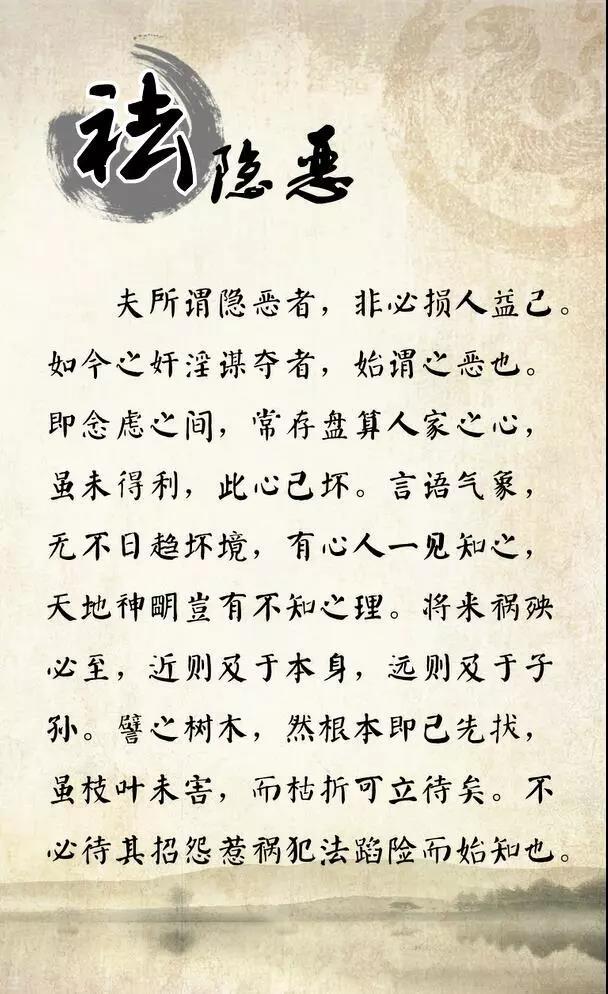 祛隐恶
夫所谓隐恶者，非必损人益己。
如今之奸淫谋夺者，始谓之恶也。
即念虑之间，常存盘算人家之心，
虽未得利，此心已坏。言语气象，
无不日趋坏境，有心人一见知之，
天地神明岂有不知之理。将来祸殃
必至，近则及于本身，远则及于子
孙。譬之树木，然根本即已先拔，
虽枝叶未害，而枯折可立待矣。不
必待其招怨惹祸犯法蹈险而始知也。